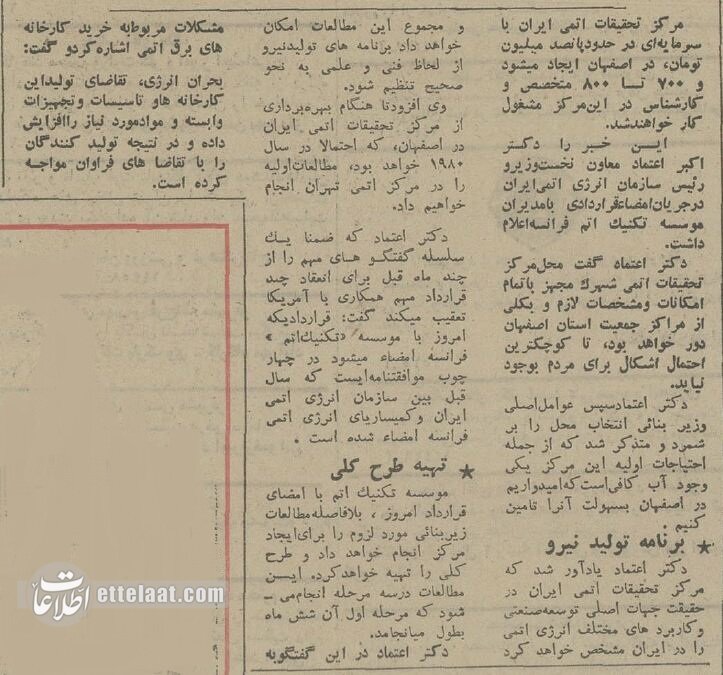 مرکز تحقیقات اتمی ایران با
سرمایه‌ای در حدودپانصد میلیون
تومان، در اصفهان ایجاد میشود
و ۷۰۰ تا ۸۰۰ متخصص و
کارشناس در این‌مرکز مشغول
کار خواهندشد.
این خبر را دکتر
اکبر اعتماد معاون نخست‌وزیرو
رئیس سازمان انرژی اتمی‌ایران
درجریان‌امضاءقراردادی بامدیران
موسسه تکنیك اتم فرانسه‌اعلام
داشت.
دکتر اعتماد گفت محل‌مرکز
تحقیقات اتمی شهرك مجهز باتمام
امکانات ومشخصات لازم و بکلی
از مراکز جمعیت استان اصفهان
دور خواهد بود، تا کوچکترین
احتمال اشکال برای مردم بوجود
نیاید.
دکتر اعتمادسپس عوامل‌اصلی
وزیر بنائی انتخاب محل را بر
شمرد و متذکر شد که از جمله
احتیاجات اولیه این مرکز یکی
وجود آب کافی‌است‌که‌امیدواریم
در اصفهان بسهولت آنرا تامین
کنیم.
★ برنامه تولید نیرو
دکتر اعتماد یادآور شد که
مرکز تحقیقات اتمی ایران در
حقیقت جهات اصلی توسعه‌صنعتی
وکاربرد های مختلف انرژی اتمی
را در ایران مشخص خواهد کرد
و مجموع این مطالعات امکان
خواهد داد برنامه های تولیدنیرو
از لحاظ فنی و علمی به نحو
صحیح تنظیم شود.
وی افزودتا هنگام بهره‌برداری
از مرکز تحقیقات اتمی ایران
در اصفهان، که احتمالا در سال
۱۹۸۰ خواهد بود، مطالعات‌اولیه
را در مرکز اتمی تهران انجام
خواهیم داد.
دکتر اعتماد که ضمنا یك
سلسله گفتگو های مهم را از
چند ماه قبل برای انعقاد چند
قرارداد مهم همکاری با آمریکا
تعقیب میکند گفت: قراردادیکه
امروز با موسسه «تکنیك‌اتم»
فرانسه امضاء میشود در چهار
چوب موافقتنامه‌ایست که سال
قبل بین سازمان انرژی اتمی
ایران وکمیساریای انرژی اتمی
فرانسه امضاء شده است.
★ تهیه طرح کلی
موسسه تکنیك اتم با امضای
قرارداد امروز، بلافاصله‌مطالعات
زیربنائی مورد لزوم را برای‌ایجاد
مرکز انجام خواهد داد و طرح
کلی را تهیه خواهدکرد. ایسن
مطالعات درسه مرحله انجام‌می‌ـ
شود که مرحله اول آن شش ماه
بطول میانجامد.
دکتر اعتماد در این گفتگوبه
مشکلات مربوط‌به خرید کارخانه
های برق اتمی اشاره‌کردو گفت:
بحران انرژی، تقاضای تولیداین
کارخانه هاو تاسیسات وتجهیزات
وابسته و موادمورد نیاز راافزایش
داده و در نتیجه تولید کنندگان
را با تقاضا های فراوان مواجه
کرده است.
اطلاعات ettelaat.com